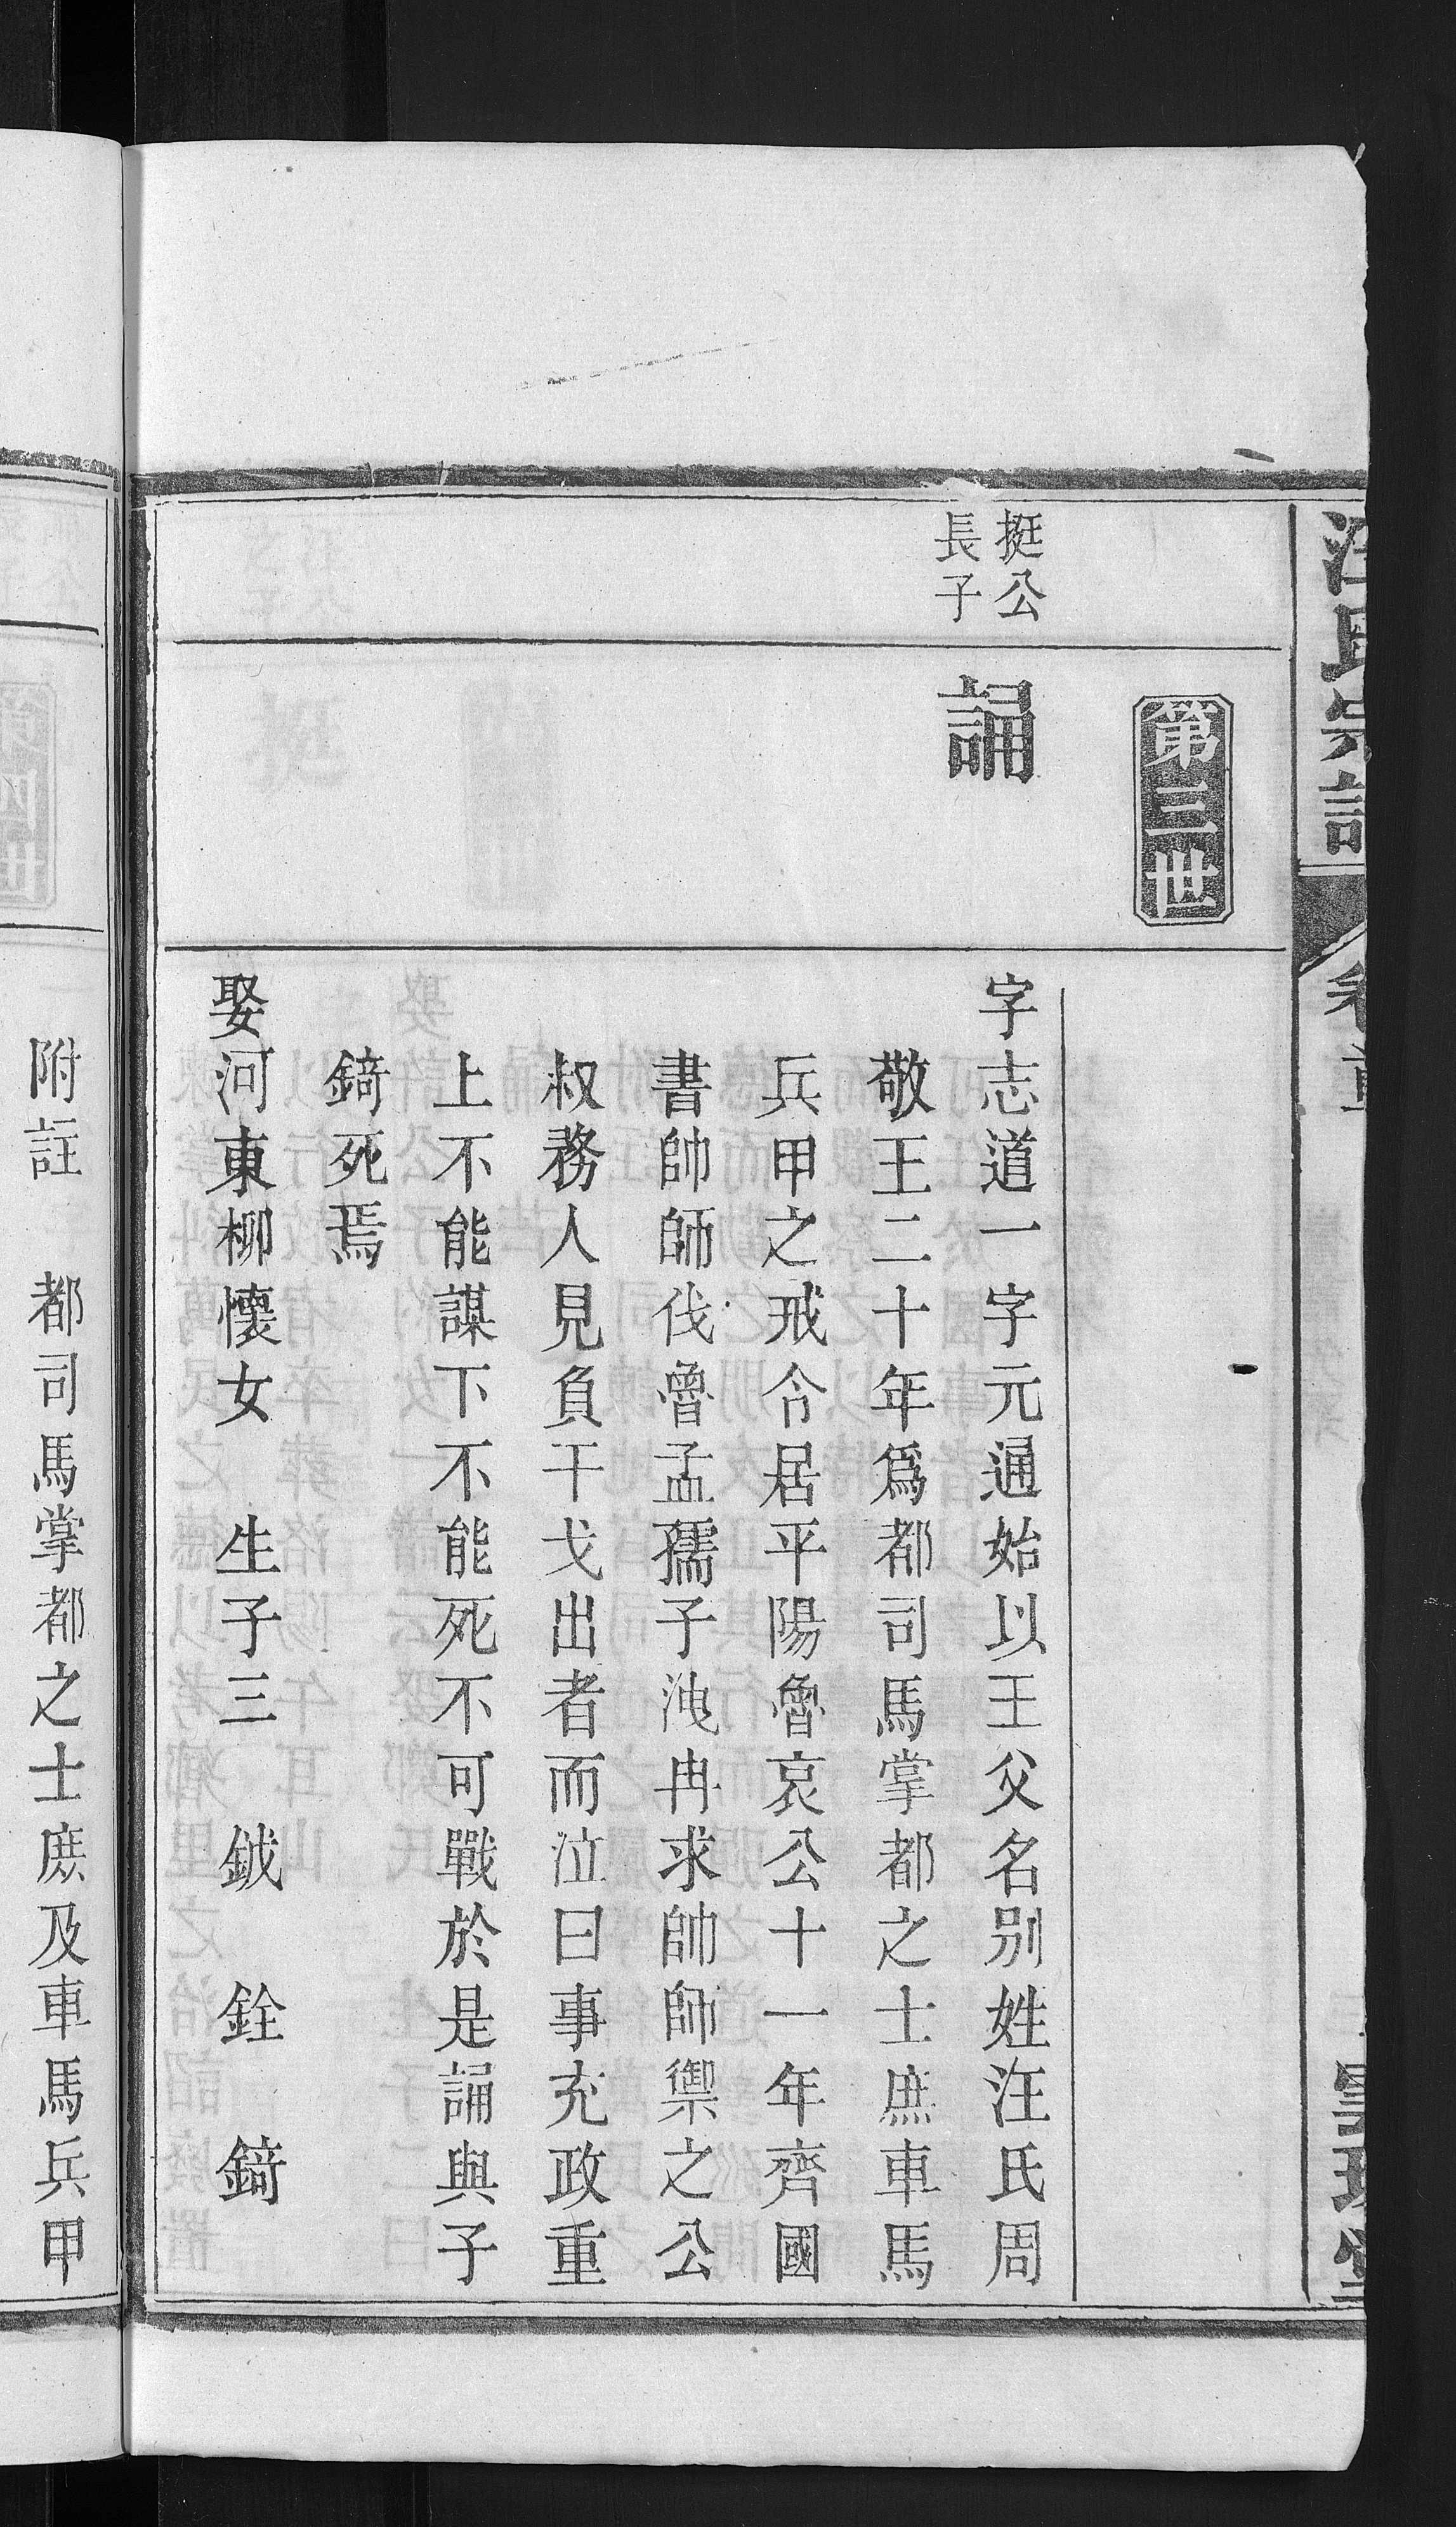 汪氏宗譜
第三世
挺公
長子
誦
字志道一字元通始以王父名别姓汪氏周
敬王二十年爲都司馬掌都之士庶車馬
兵甲之戒令居平陽魯哀公十一年齊國
書帥師伐魯孟孺子洩冉求帥師禦之公
叔務人見負干戈出者而泣曰事充政重
上不能謀下不能死不可戰於是誦與子
錡死焉
娶河東柳懷女 生子三 鉞 銓 錡
附註 都司馬掌都之士庶及車馬兵甲